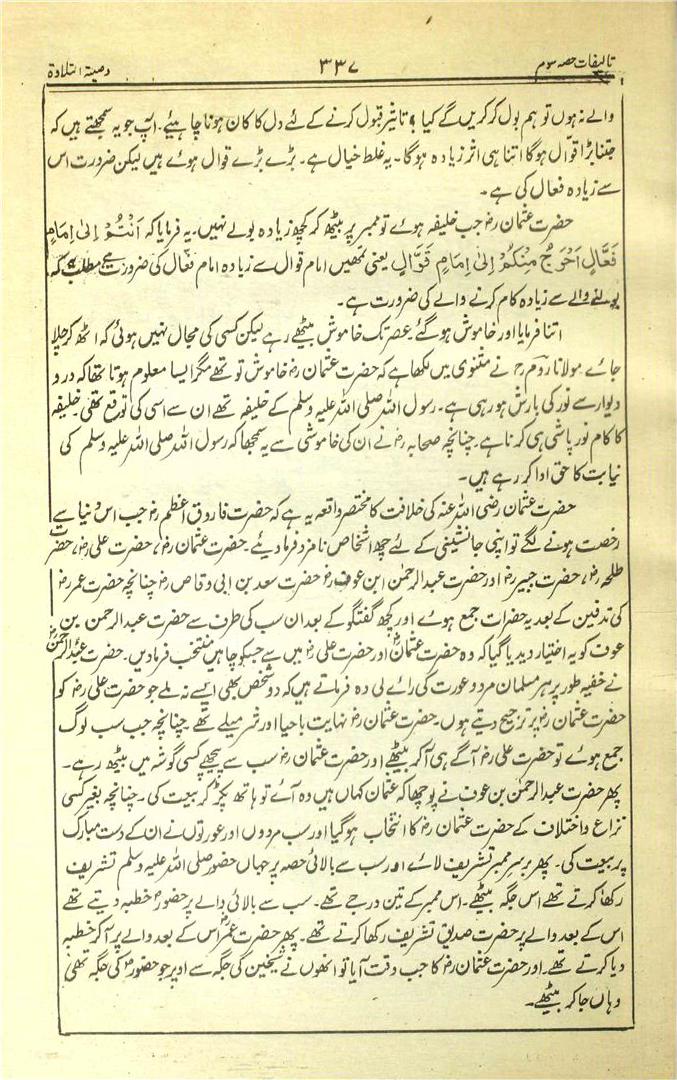 تالیفات حصہ سوم ۳۳۷ وصیۃ التلاوۃ
والے نہ ہوں تو ہم بول کر کریں گے کیا؟ تاثیر قبول کرنے کے لئے دل کا کان ہونا چاہیئے۔ آپ جو یہ سمجھتے ہیں کہ
جتنا بڑا قوّال ہوگا اتنا ہی اثر زیادہ ہوگا۔ یہ غلط خیال ہے۔ بڑے بڑے قوال ہوئے ہیں لیکن ضرورت اس
سے زیادہ فعال کی ہے۔
حضرت عثمان رضؓ جب خلیفہ ہوئے تو ممبر پر بیٹھ کر کچھ زیادہ بولے نہیں۔ یہ فرمایا کہ اَنْتُمْ اِلیٰ اِمَامٍ
فَعَّالٍ اَحْوَجُ مِنْکُمْ اِلیٰ اِمَامٍ قَوَّالٍ یعنی تمھیں امام قوال سے زیادہ امام فعّال کی ضرورت ہے مطلب یہ کہ
بولنے والے سے زیادہ کام کرنے والے کی ضرورت ہے۔
اتنا فرمایا اور خاموش ہوگئے۔ عصر تک خاموش بیٹھے رہے لیکن کسی کی مجال نہیں ہوئی کہ اٹھ کر چلا
جائے مولانا رومؒ نے مثنوی میں لکھا ہے کہ حضرت عثمان رضؓ خاموش تو تھے مگر ایسا معلوم ہوتا تھا کہ در و
دیوار سے نور کی بارش ہو رہی ہے۔ رسول اللہ صلی اللہ علیہ وسلم کے خلیفہ تھے ان سے اسی کی توقع تھی۔ خلیفہ
کا کام نور پاشی ہی کرنا ہے۔ چنانچہ صحابہ رضؓ نے ان کی خاموشی سے یہ سمجھا کہ رسول اللہ صلی اللہ علیہ وسلم کی
نیابت کا حق ادا کر رہے ہیں۔
حضرت عثمان رضی اللہ عنہ کی خلافت کا مختصر واقعہ یہ ہے کہ حضرت فاروق اعظم رضؓ جب اس دنیا سے
رخصت ہونے لگے تو اپنی جانشینی کے لئے چھ اشخاص نامزد فرما دیئے۔ حضرت عثمان رضؓ، حضرت علی رضؓ، حضرت
طلحہ رضؓ، حضرت جبیر رضؓ اور حضرت عبد الرحمٰن ابن عوف رضؓ حضرت سعد بن ابی وقاص رضؓ چنانچہ حضرت عمر رضؓ
کی تدفین کے بعد یہ حضرات جمع ہوئے اور کچھ گفتگو کے بعد ان سب کی طرف سے حضرت عبد الرحمن بن
عوف کو یہ اختیار دیدیا گیا کہ وہ حضرت عثمانؓ اور حضرت علی رضؓ میں سے جسکو چاہیں منتخب فرمادیں۔ حضرت عبد الرحمنؓ
نے خفیہ طور پر ہر مسلمان مرد و عورت کی رائے لی وہ فرماتے ہیں کہ دو شخص بھی ایسے نہ ملے جو حضرت علی رضؓ کو
حضرت عثمان رضؓ پر ترجیح دیتے ہوں۔ حضرت عثمان رضؓ نہایت باحیا اور شرمیلے تھے چنانچہ جب سب لوگ
جمع ہوئے تو حضرت علی رضؓ آگے ہی آکر بیٹھے اور حضرت عثمان رضؓ سب سے پیچھے کسی گوشہ میں بیٹھ رہے۔
پھر حضرت عبد الرحمٰن بن عوف نے پوچھا کہ عثمان کہاں ہیں وہ آئے تو ہاتھ پکڑ کر بیعت کی۔ چنانچہ بغیر کسی
نزاع و اختلاف کے حضرت عثمان رضؓ کا انتخاب ہوگیا اور سب مردوں اور عورتوں نے ان کے دست مبارک
پر بیعت کی۔ پھر برسر ممبر تشریف لائے اور سب سے بالائی حصہ پر جہاں حضور صلی اللہ علیہ وسلم تشریف
رکھا کرتے تھے اس جگہ بیٹھے۔ اس ممبر کے تین درجے تھے۔ سب سے بالائی والے پر حضورؐ خطبہ دیتے تھے
اس کے بعد والے پر حضرت صدیق تشریف رکھا کرتے تھے۔ پھر حضرت عمرؓ اس کے بعد والے پر آکر خطبہ
دیا کرتے تھے۔ اور حضرت عثمان رضؓ کا جب وقت آیا تو انھوں نے شیخین کی جگہ سے اوپر جو حضورؐ کی جگہ تھی
وہاں جا کر بیٹھے۔